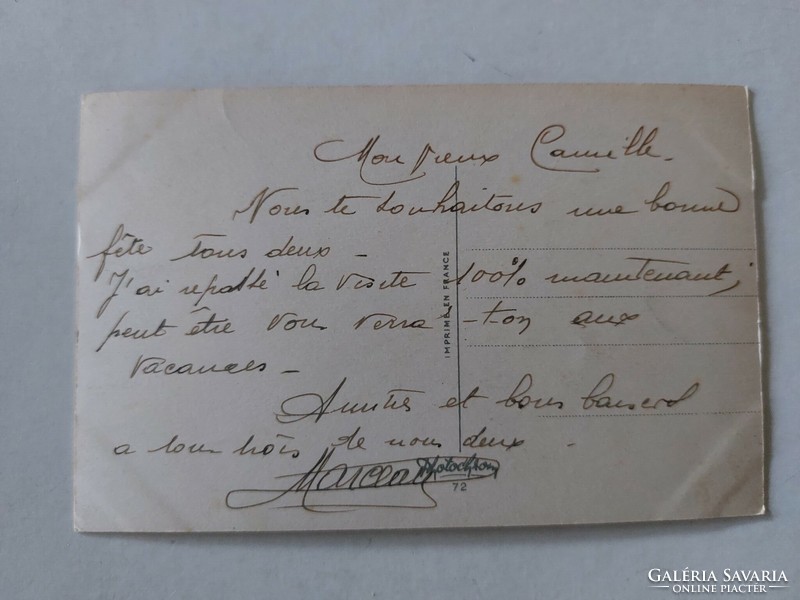 Mon vieux Camille.
Nous te souhaitons une bonne
fête tous deux –
J'ai repassé la visite 100% maintenant,
peut être vous verra-t-on aux
vacances –
Amitiés et bons baisers
a tous trois de nous deux.
Marceau
Photochrom
72
IMPRIMÉ EN FRANCE
GALÉRIA SAVARIA
ONLINE PIACTÉR